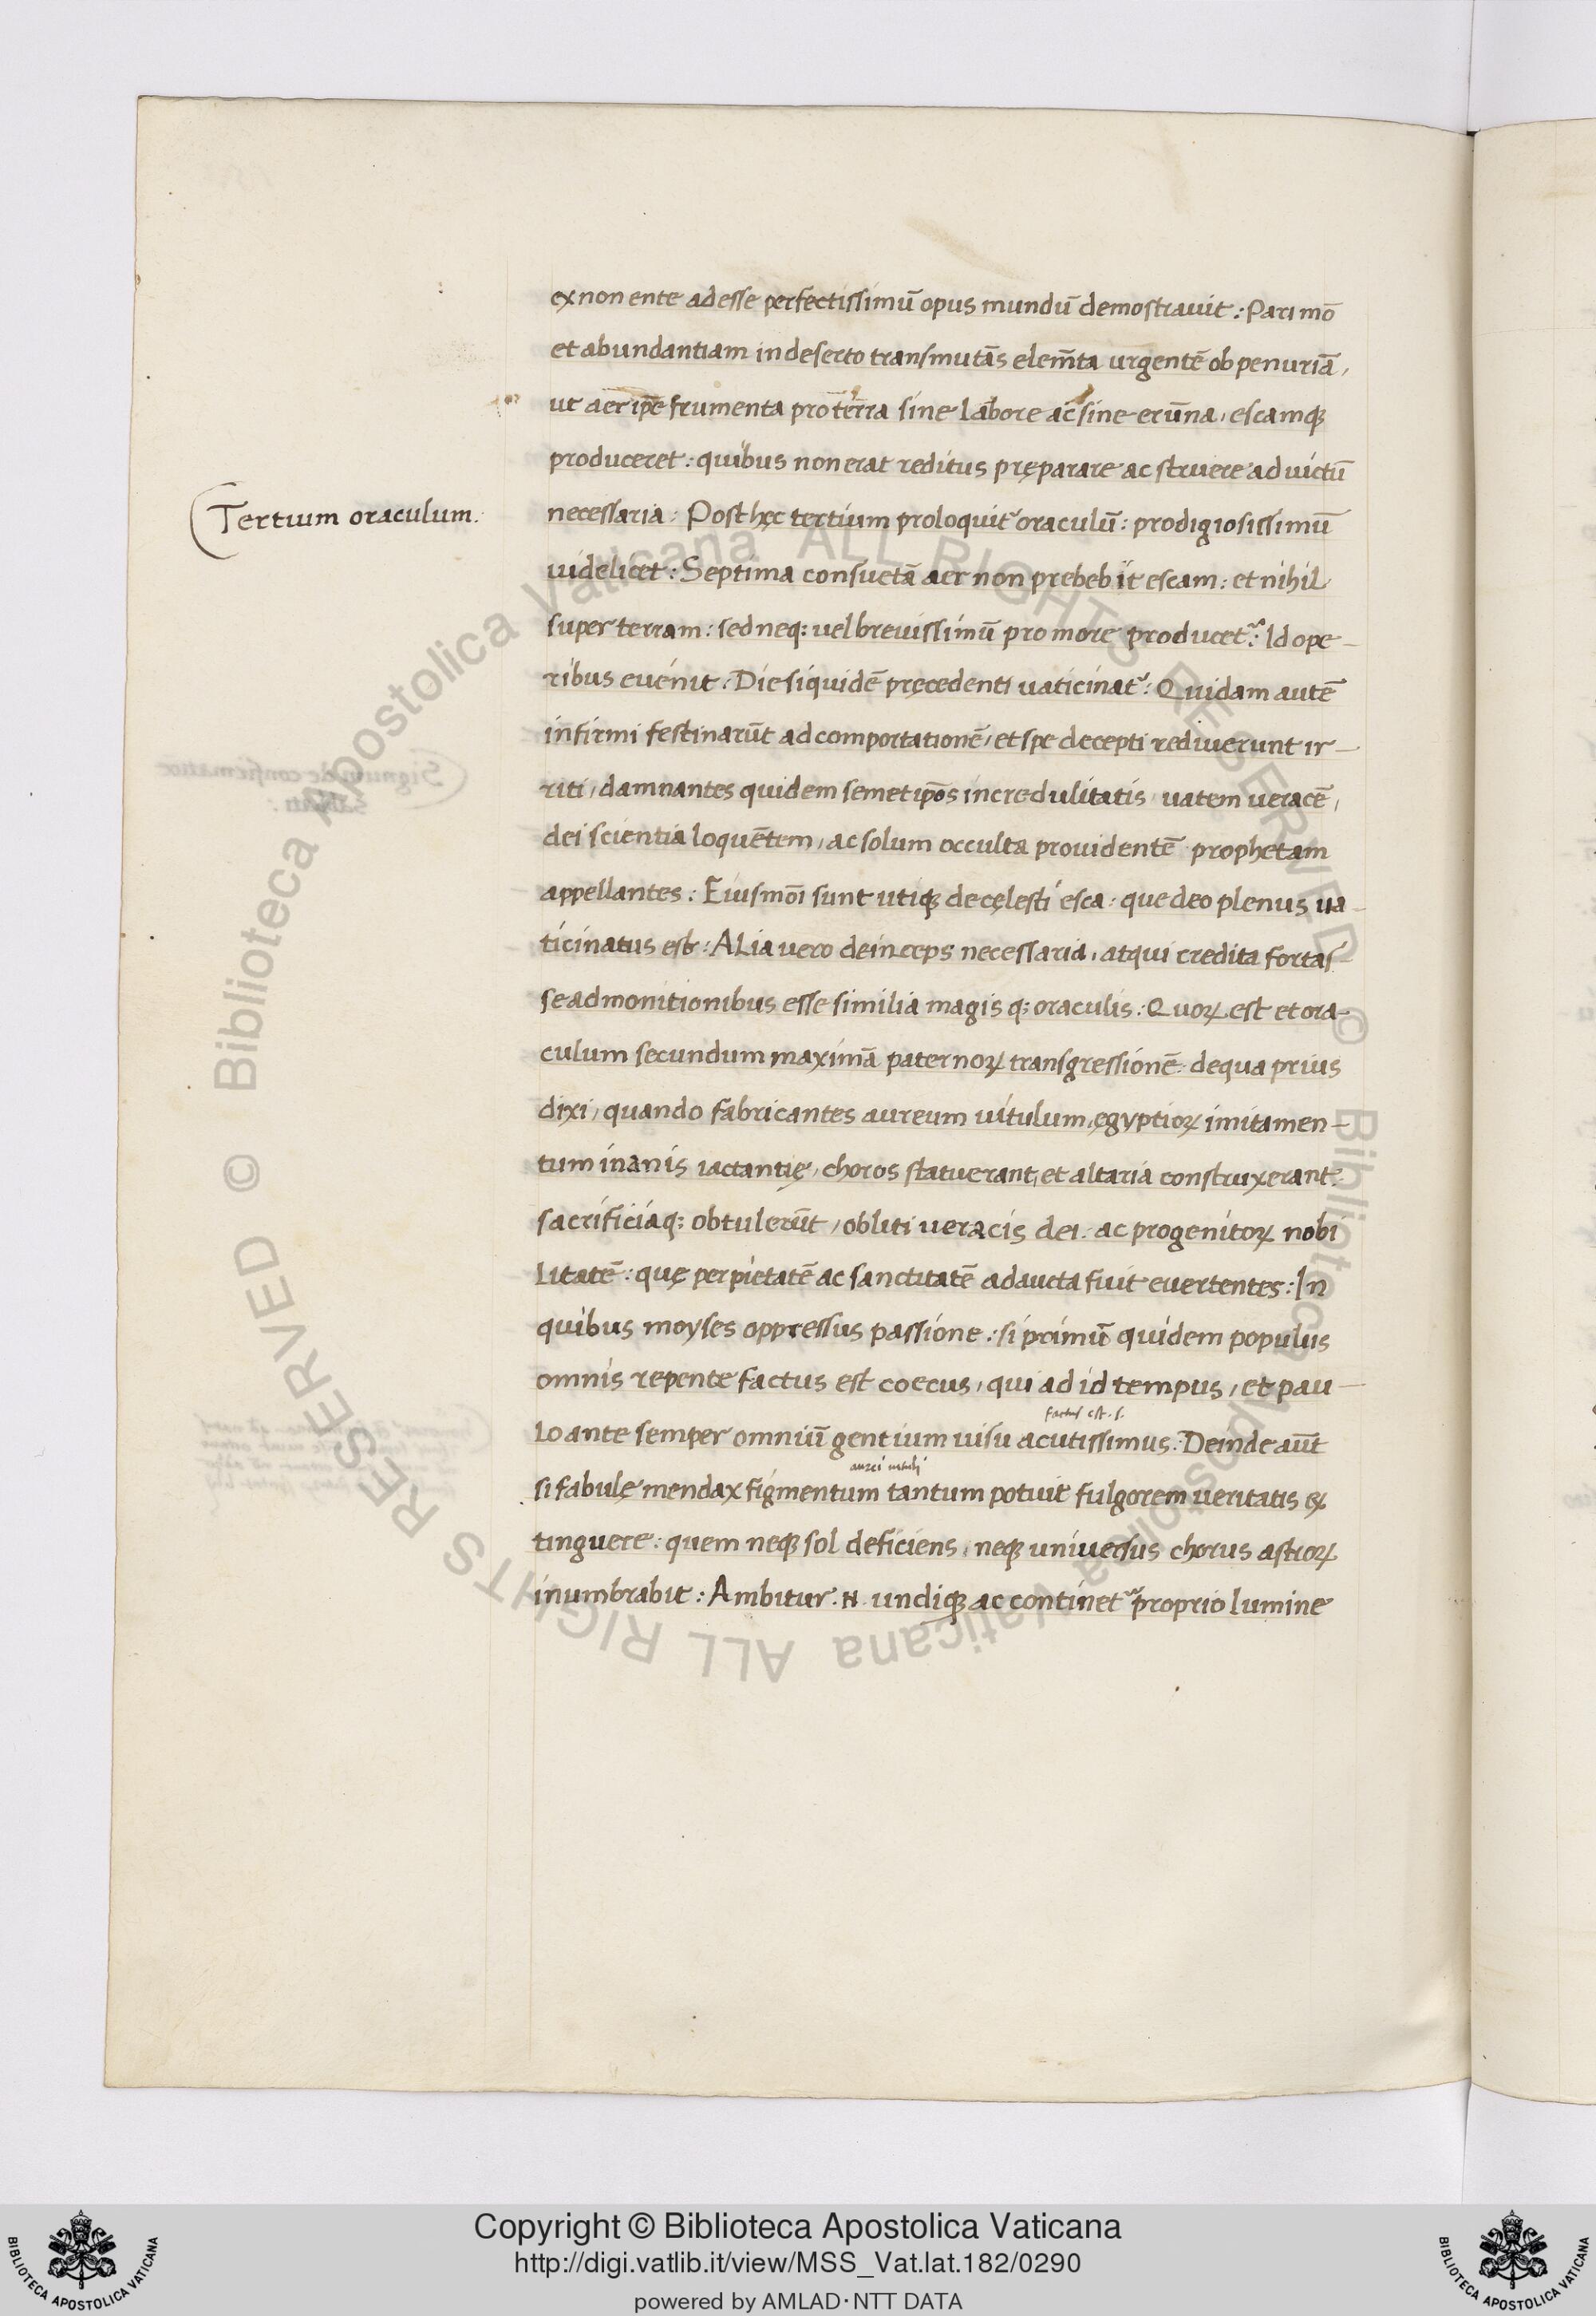 ex non ente ad esse perfectissimū opus mundū demostrauit : Pari mō
et abundantiam in deserto transmutās elem̄ta urgentē ob penuriā,
ut aer ip̄e frumenta pro terra sine labore ac sine erūna, escamqꝫ
produceret : quibus non erat reditus pręparare ac struere ad uictū
Tertium oraculum.
necessaria : Post hęc tertium proloquit᷑ oraculū : prodigiosissimū
uidelicet : Septima consuetā aer non prebebit escam : et nihil
super terram : sed neq: uel breuissimū pro more producet᷑ : Id ope-
ribus euenit : Die siquidē pręcedenti uaticinat᷑ : Quidam autē
infirmi festinarūt ad comportationē, et spe decepti rediuerunt ir-
riti, damnantes quidem semetip̄os incredulitatis, uatem ueracē,
dei scientia loquētem, ac solum occulta prouidentē prophetam
appellantes : Eiusmōi sunt utiqꝫ de cęlesti esca : que deo plenus ua-
ticinatus est : Alia uero deinceps necessaria, atqui credita fortas
se admonitionibus esse similia magis q; oraculis : Quoꝝ est et ora-
culum secundum maximā paternoꝝ transgressionē de qua prius
dixi, quando fabricantes aureum uitulum, ęgyptioꝝ imitamen-
tum inanis iactantię, choros statuerant, et altaria construxerant
sacrificiaq; obtulerūt, obliti ueracis dei. ac progenitoꝝ nobi
litatē : quę per pietatē ac sanctitatē adaucta fuit euertentes : In
quibus moyses oppressus passione : si primū quidem populus
omnis repente factus est coecus, qui ad id tempus, et pau-
factus est. s.
lo ante semper omniū gentium uisu acutissimus : Deinde aūt
aurei uituli
si fabulę mendax figmentum tantum potuit fulgorem ueritatis ex
tinguere : quem neqꝫ sol deficiens, neqꝫ uniuersus chorus astroꝝ
inumbrabit : Ambitur .N. undiqꝫ ac continet᷑ proprio lumine
Copyright © Biblioteca Apostolica Vaticana
http://digi.vatlib.it/view/MSS_Vat.lat.182/0290
powered by AMLAD·NTT DATA
BIBLIOTECA APOSTOLICA VATICANA
BIBLIOTECA APOSTOLICA VATICANA
© Biblioteca Apostolica Vaticana ALL RIGHTS RESERVED
© Biblioteca Apostolica Vaticana ALL RIGHTS RESERVED